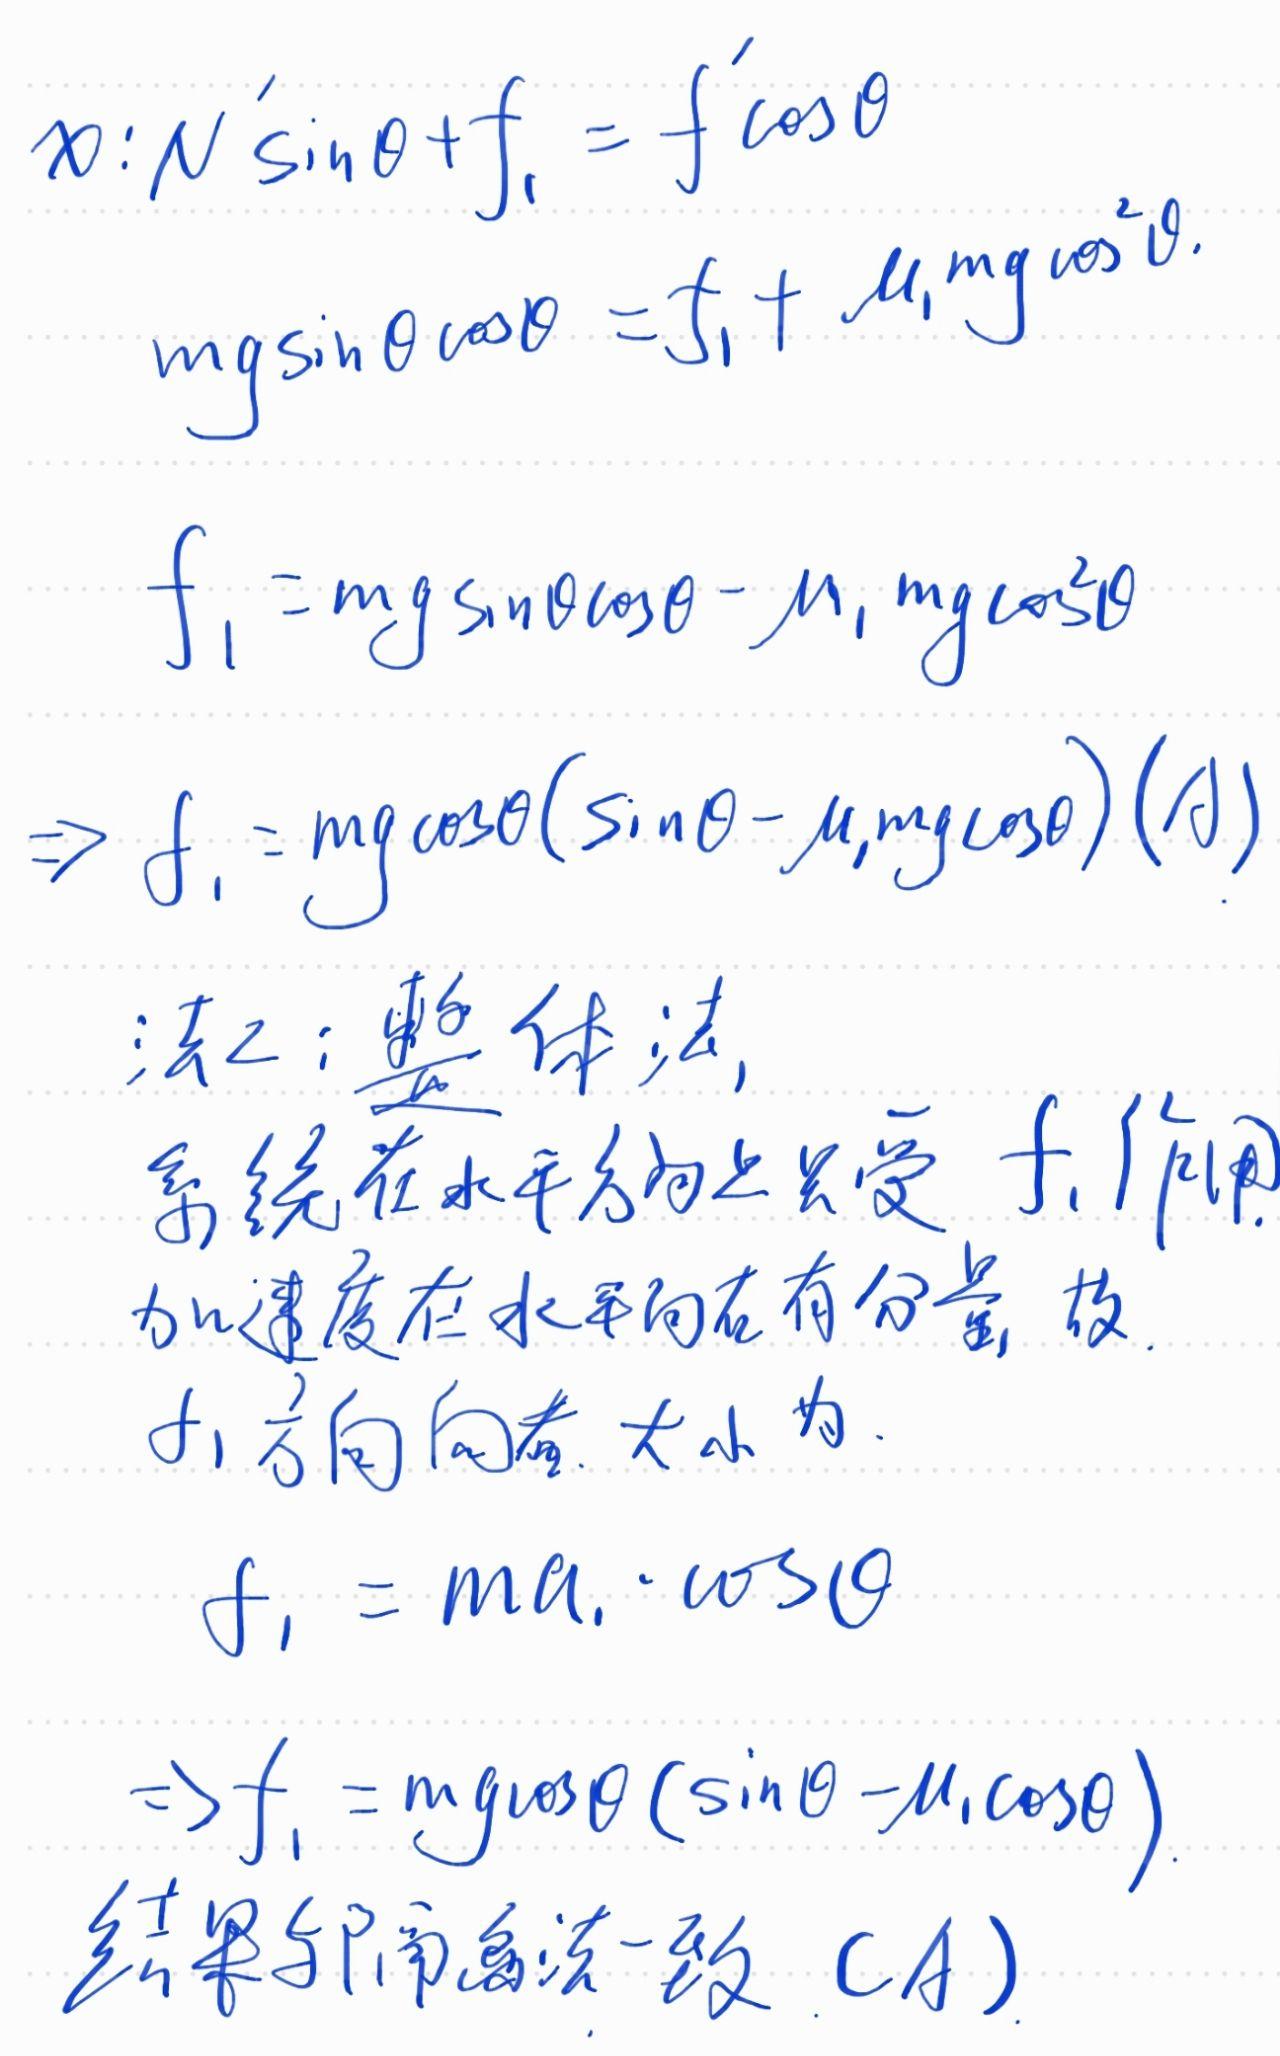 x: N′sinθ + f₁ = f′cosθ
mgsinθcosθ = f₁ + μ₁mgcos²θ.
f₁ = mgsinθcosθ - μ₁mgcos²θ
⇒ f₁ = mgcosθ(sinθ - μ₁mgcosθ) (A).
法2: 整体法,
系统在水平方向上只受 f₁作用.
加速度在水平向右有分量, 故.
f₁方向向右. 大小为.
f₁ = ma₁·cosθ
⇒ f₁ = mgcosθ(sinθ - μ₁cosθ).
结果与隔离法一致. (A).